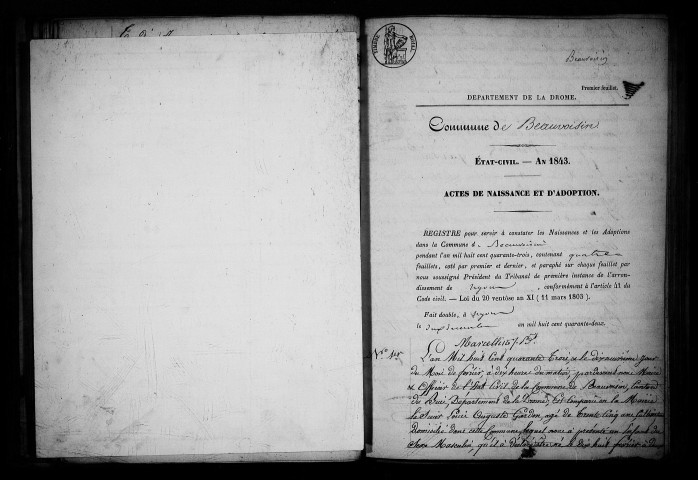 TIMBRE ROYAL
Beauvoisin
Premier feuillet.
DÉPARTEMENT DE LA DROME.
Commune de Beauvoisin
ÉTAT-CIVIL. — AN 1843.
ACTES DE NAISSANCE ET D'ADOPTION.
REGISTRE pour servir à constater les Naissances et les Adoptions
dans la Commune d e Beauvoisin
pendant l'an mil huit cent quarante-trois, contenant quatre
feuillets, coté par premier et dernier, et paraphé sur chaque feuillet par
nous soussigné Président du Tribunal de première instance de l'arron-
dissement de Nyons, conformément à l'article 41 du
Code civil. — Loi du 20 ventôse an XI (11 mars 1803).
Fait double, à Nyons
le dix décembre an mil huit cent quarante-deux.
Marcellin
L'an Mil huit Cent quarante Trois, et le dix neuvième jour
du Mois de février, à dix heures du matin, pardevant nous Maire
et Officier de l'état Civil de la Commune de Beauvoisin, Canton
du Buis, Département de la Drôme, est Comparu en la Mairie
le Sieur Auguste Gardon, agé de trente Cinq ans Cultivateur
Domicilié dans cette Commune, lequel nous a présenté un Enfant du
Sexe Masculin, qu'il a Déclaré être né le Dix huit février à